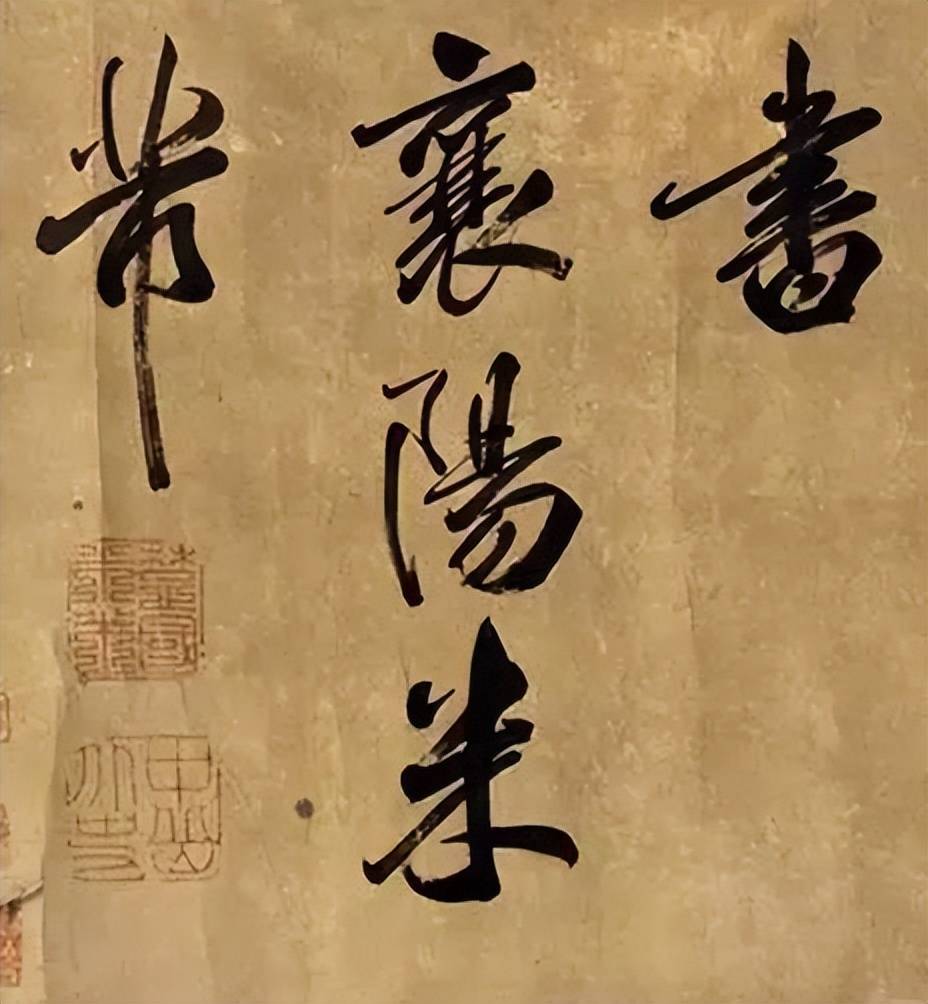 書
襄陽米
芾